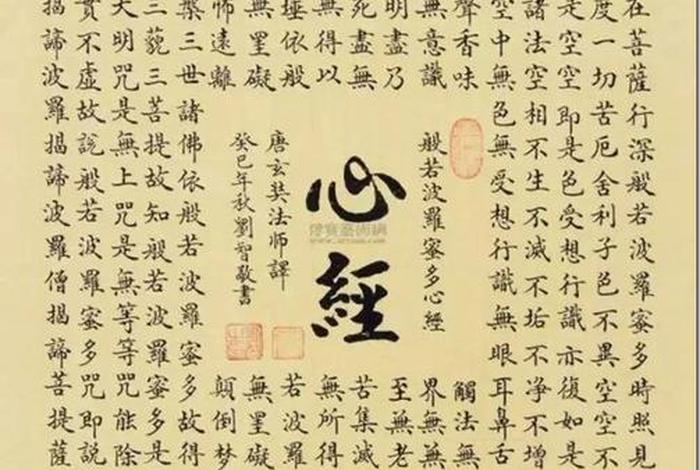 在菩薩行深般若波羅蜜多時照見
度一切苦厄舍利子色不異空空不
是空空即是色受想行識亦復如是
諸法空相不生不滅不垢不净不增
空中無色無受想行識無眼耳鼻舌
聲香味
觸法無
無意識
界無無
明盡乃
至無老
死盡無
苦集滅
無得以
無所得
埵依般
若波羅
無罣礙
無罣礙
怖遠離
顛倒梦
般若波羅蜜多心經
心經
唐玄奘法師譯
癸巳年秋劉智敬書
槃三世諸佛依般若波羅蜜多故得
三藐三菩提故知般若波羅蜜多是
大明咒是無上咒是無等等咒能除
實不虛故說般若波羅蜜多咒即說
揭諦波羅揭諦波羅僧揭諦菩提薩